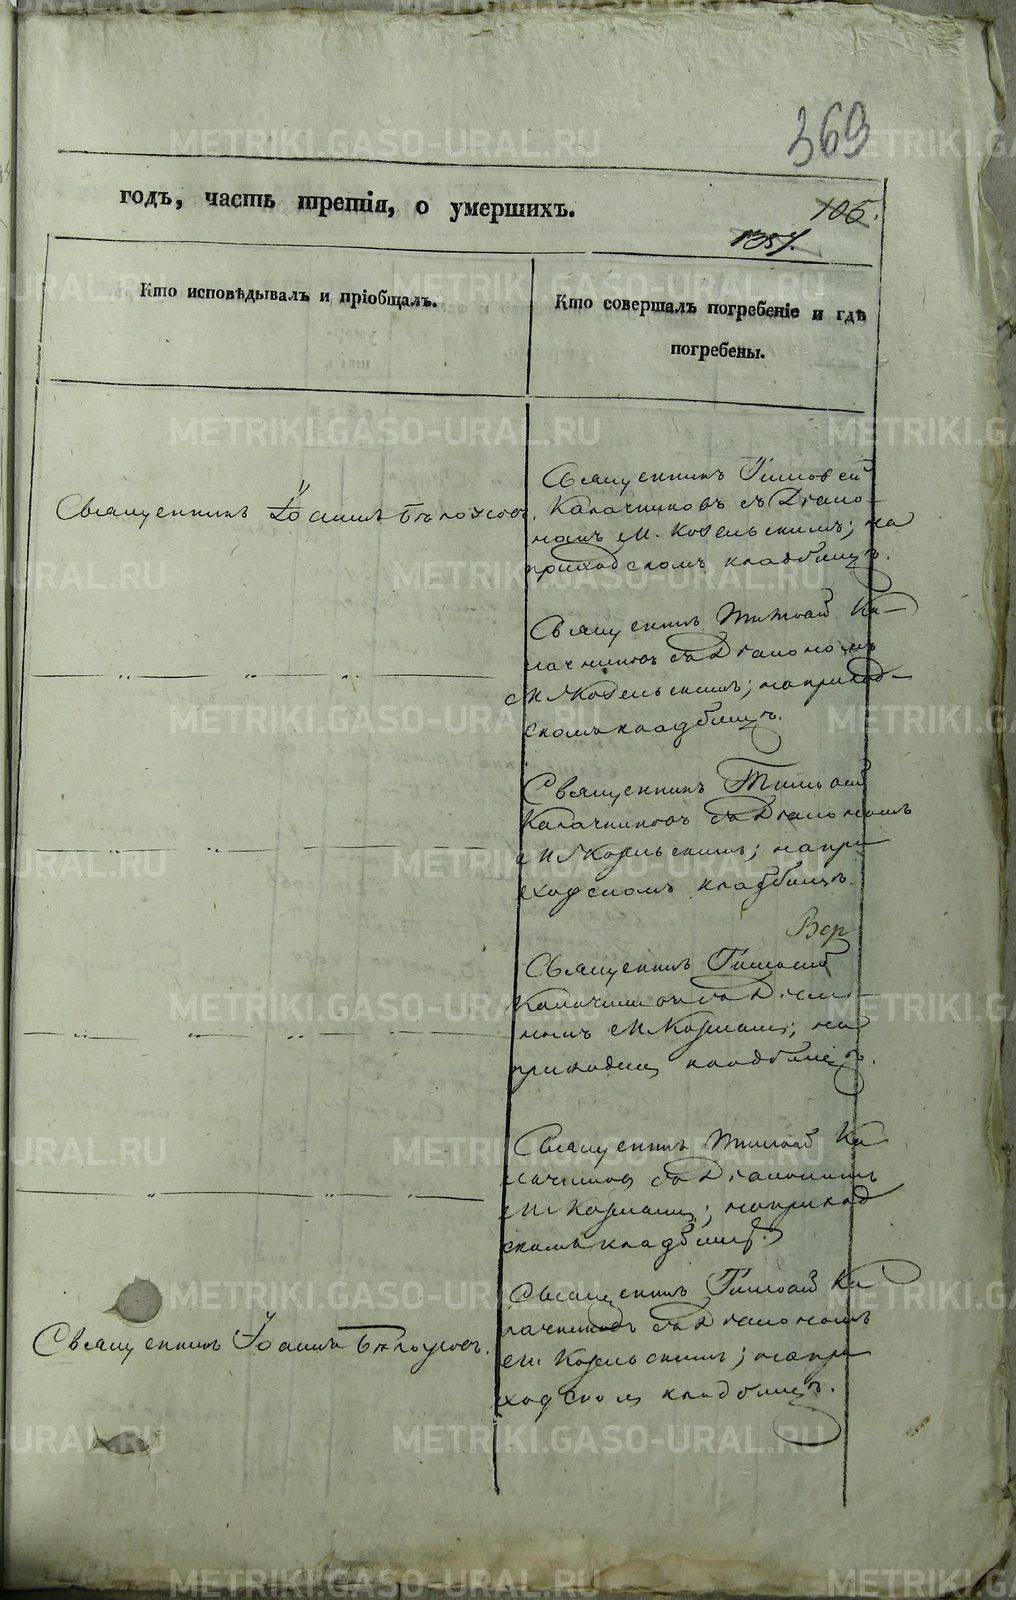 369
годъ, часть третія, о умершихъ.
105.
1357.
Кто исповѣдывалъ и пріобщалъ.
Кто совершалъ погребеніе и гдѣ
погребены.
Священникъ Іоаннъ Бѣлоусовъ.
Священникъ Тимоѳей
Калачниковъ съ Діако-
номъ М. Козельскимъ; на
приходскомъ кладбищѣ.
Священникъ Тимоѳей Ка-
лачниковъ съ Діакономъ
М. Козельскимъ; на приход-
скомъ кладбищѣ.
Священникъ Тимоѳей
Калачниковъ съ Діакономъ
М. Козельскимъ; на при
ходскомъ кладбищѣ.
Вер
Священникъ Тимоѳей
Калачниковъ съ Діако-
номъ М. ; на
приходск кладбищѣ.
Священникъ Тимоѳей Ка
лачников съ Діакономъ
М. ; на приход
скомъ кладбищѣ.
Священникъ Тимоѳей Ка
лачниковъ съ Діакономъ
Священникъ Іоаннъ Бѣлоусовъ.
М. Козельскимъ; на при
ходском кладбищѣ.
METRIKI.GASO-URAL.RU